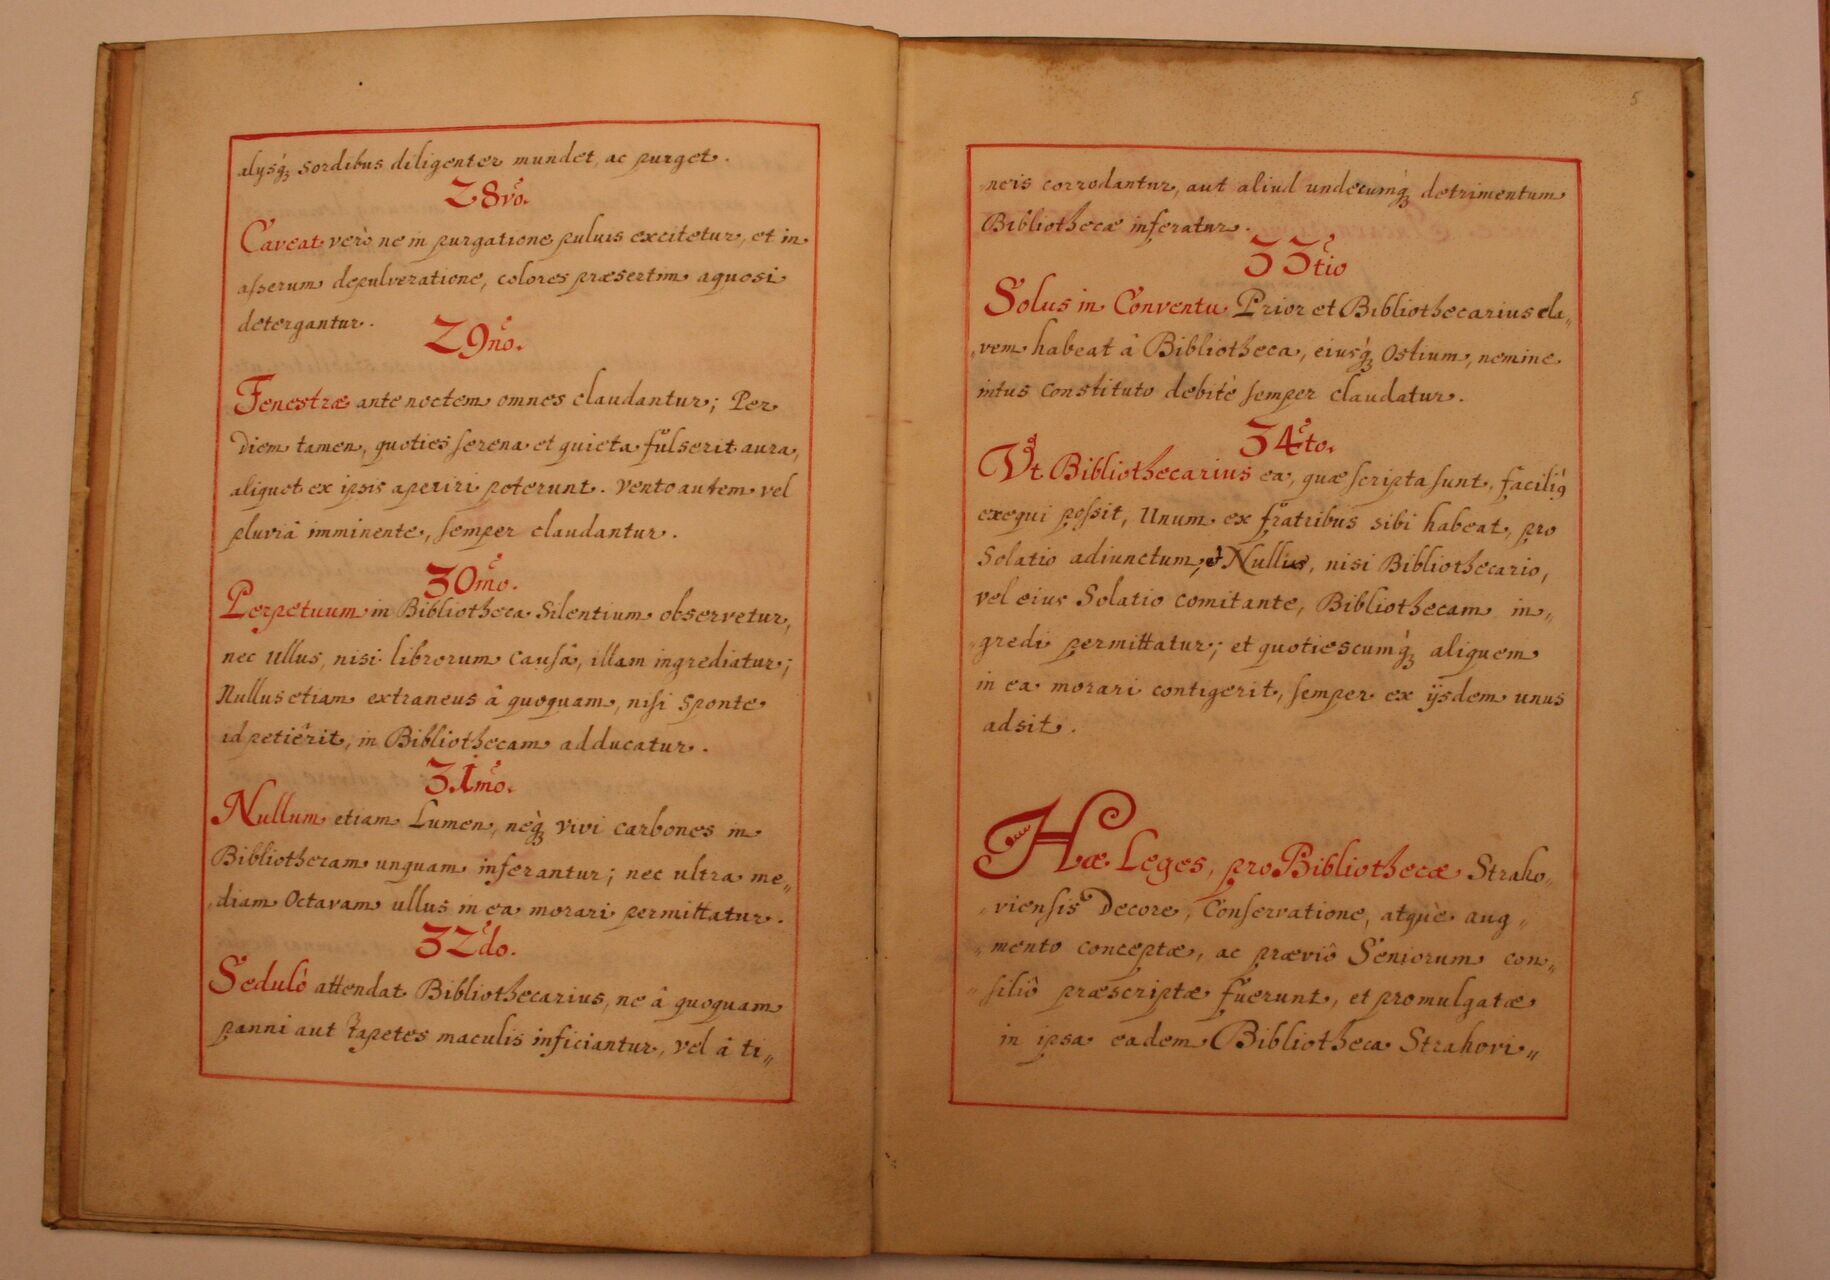 alysq́; sordibus diligenter mundet, ac purget.
28vo.
Caveat verò ne in purgatione puluis excitetur, et in
asserum depulveratione, colores præsertim aquosi
detergantur.
29no.
Fenestræ ante noctem omnes claudantur; Per
Diem tamen, quoties serena et quieta fulserit aura,
aliquot ex ipsis aperiri poterunt. Vento autem vel
pluviâ imminente, semper claudantur.
30mo.
Perpetuum in Bibliotheca Silentium observetur,
nec Ullus, nisi librorum Causâ, illam ingrediatur;
Nullus etiam extraneus â quoquam, nisi Sponte
id petiêrit, in Bibliothecam adducatur.
31mo.
Nullum etiam Lumen, neq́; vivi carbones in
Bibliothecam unquam inferantur; nec ultra me„
„diam Octavam ullus in ea morari permittatur.
32do.
Sedulò attendat Bibliothecarius, ne â quoquam
panni aut Tapetes maculis inficiantur, vel â ti„
5
„neis corrodantur, aut aliud undecumq́; detrimentum
Bibliothecæ inferatur.
33tio
Solus in Conventu Prior et Bibliothecarius cla„
„vem habeat â Bibliotheca, eiusq́; Ostium, nemine
intus constituto debitè semper claudatur.
34to.
Vt Bibliothecarius ea, quæ scripta sunt, faciliq́
exequi possit, Unum ex fratribus sibi habeat, pro
Solatio adiunctum, Nullus, nisi Bibliothecario,
vel eius Solatio comitante, Bibliothecam in„
„gredi permittatur; et quotiescumq́; aliquem
in ea morari contigerit, semper ex ijsdem unus
adsit.
Hæ Leges, pro Bibliothecæ Straho„
„viensis Decore, Conservatione, atquè aug„
„mento conceptæ, ac præviô Seniorum con„
„siliô præscriptæ fuerunt, et promulgatæ
in ipsa eadem Bibliotheca Strahovi„